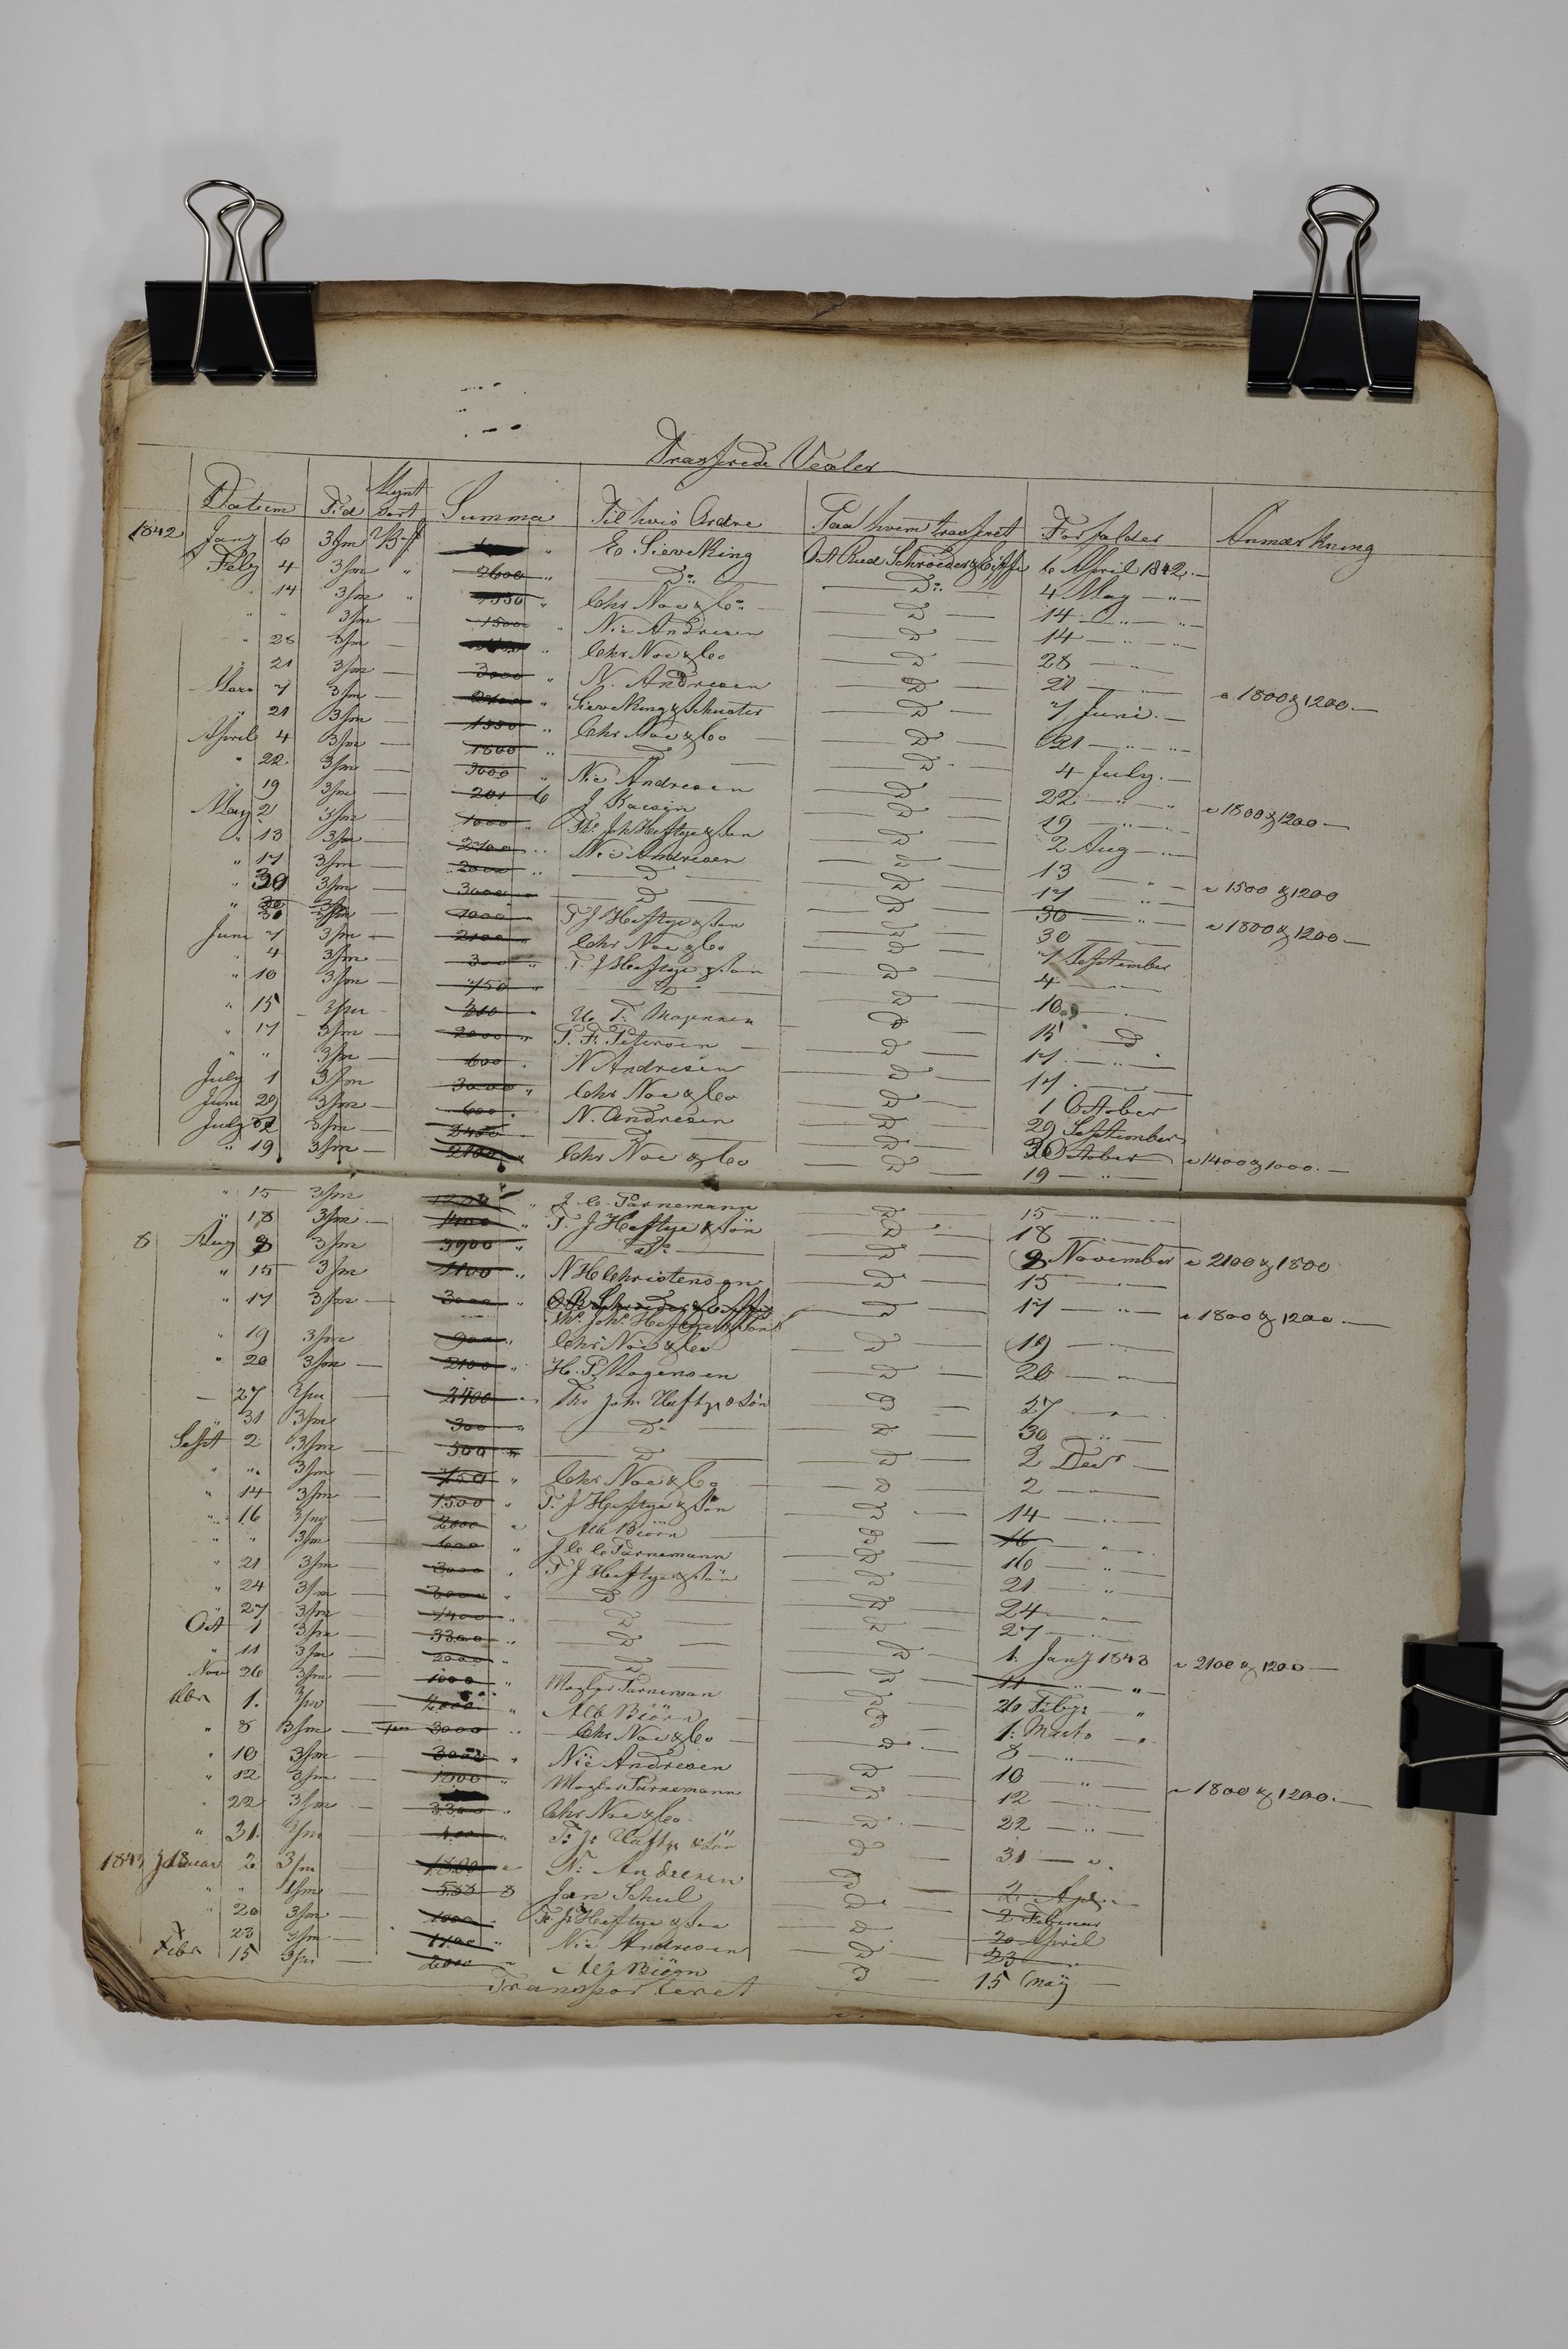 Trasserede Vexler
Datum Tid Mynt sort Summa Til hvis Ordre Paa hvem trasseret Forfalder Anmærkning
1842 Jany 6 3/m E. Sieveking 6 April 1842
Feby 4 3/m " 2600 " Do Do 4 May
" 14 3/m " 1350 " Chr Noe & Co D 14
" " 3/m 1500 " Nic Andresen D 14
" 28 3/m " Chr Noe & Co D 28
" 21 3/m 3000 " N. Andresen D 21 a 1800 & 1200
Mars 7 3/m " Sieveking & Schuster D 7 Juni
" 21 3/m 1350 " Chr Noe & Co D 21
April 4 3/m 1800 " D D 4 July
" 22 3/m 3000 " Nic Andresen D 22 a 1800 & 1200
" 19 3/m 201 6 J D 19
May 2 3/m 1000 " Ths Joh Heftye & Søn D 2 Aug
" 13 3/m 2700 " Nic Andresen D 13 a 1500 & 1200
" 17 3/m 2000 " D D 17
" 30 3/m 3000 " D D 30 a 1800 & 1200
" 30 3/m 1000 " T J Heftye & Søn D 30
Juni 7 3/m 2100 " Chr Noe & Co D 7 September
" 4 3/m 300 " T. J Heftye & Søn D 4
" 10 3/m 750 " D D 10
" 15 3/m 300 " D 15 D
" 17 3/m 2000 " P. F. Petersen D 17
" " 3/m 600 " N Andresen D 17
July 1 3/m 3000 " Chr Noe & Co D 1 October
Juni 29 3/m 600 " N. Andresen D 29 September
July 3/m 2400 D D October a 1400 & 1000
" 19 3/m 2100 " Chr Noe & Co D 19
" 15 3/m 1200 " J. C. Parnemann D 15
" 18 3/m 1400 " T. J Heftye & Søn D 18
8 Aug 9 3/m 3900 " do D 9 November a 2100 & 1800
" 15 3/m 1100 " N H Christensen D 15
" 17 3/m 3000 " D 17 a 1800 & 1200
Ths Johs Heftye & Søn
" 19 3/m 900 " Chr Noe & Co D 19
" 20 3/m 2100 " H. P. Mogensen D 20
27 3/m 2400 " Ths Joh Heftye & Søn D 27
31 3/m 300 " Do D 30
Sept 2 3/m 500 " D D 2 Decr
" " 3/m 750 " Chr Noe & Co D 2
" 14 3/m 1500 " T. J Heftye & Søn D 14
" 16 3/m 2000 " Alb Biörn D 16
" " 3/m 600 " J C C Parnemann D 16
" 21 3/m 3000 " T J Heftye & Søn D 21
" 24 3/m 3000 " D D 24
" 27 3/m 1400 " D D 27
Oct 1 3/m 3300 " D D 1 Jany 1843 a 2100 & 1200
" 11 3/m 2000 " D D 11
Nov 26 3/m 1000 " Mægler Parneman D 26 Feby
1. 3/m 2000 " Alb Biörn D 1. Marts
" 8 3/m 3000 " Chr Noe & Co D 8
" 10 3/m 3000 " Nic Andresen D 10 a 1800 & 1200
" 12 3/m 1200 " Mægler Parnemann D 12
" 22 3/m 3300 " Chr Noe & Co D 22
" 31 3/m " T. J. Heftye & Søn D 31
1843 Januar 2 3/m 1800 " N. Andresen D 2 Apl
" " 1/m 533 8 Jan Schul D 2 Februar
" 20 3/m 1000 " T. J. Heftye & Søn D 20 April
" 23 3/m 1100 " Nic Andresen D 23
Febr 15 3/m 2000 " Alb Biörn D 15 May
Transporteret